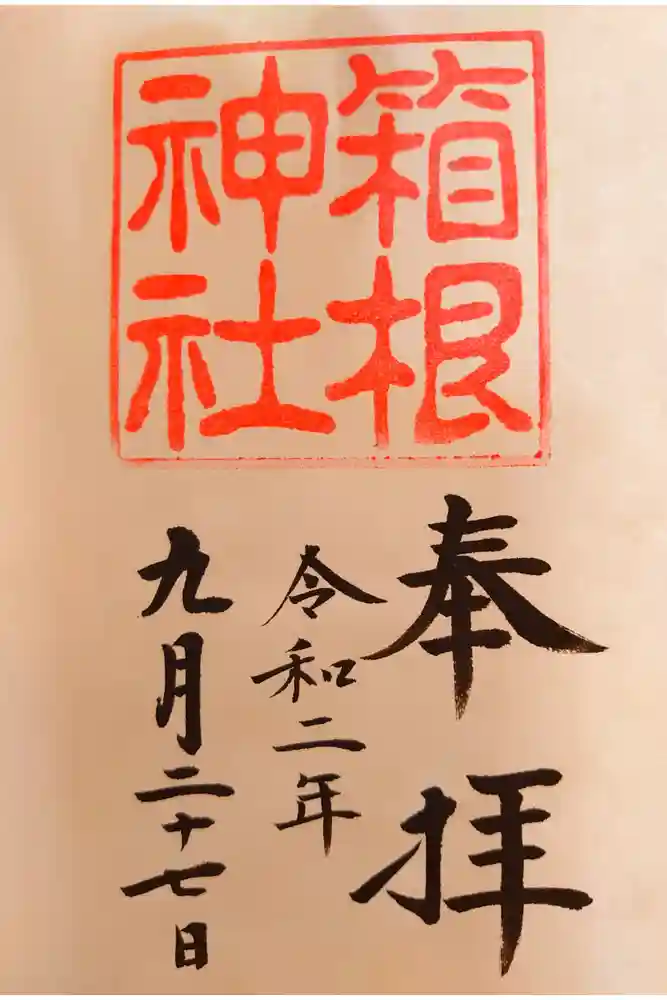 箱根
神社
奉拝
令和二年
九月二十七日